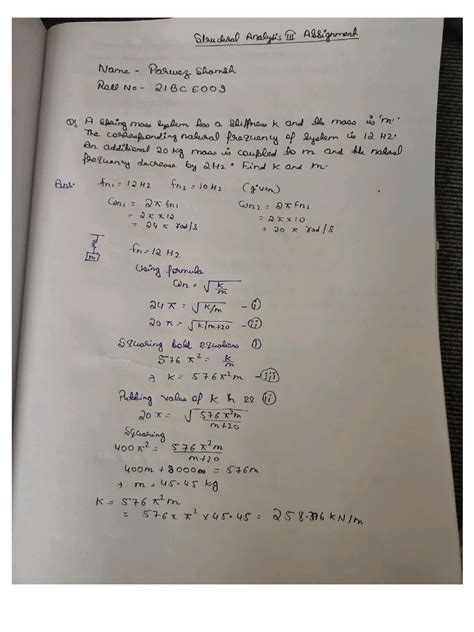 Structural Analysis III Assignment
Name - Parwez Shamsh
Roll No - 21BCE009
Q1 A spring mass system has a stiffness K and the mass is 'm'.
The corresponding natural frequency of system is 12 Hz.
An additional 20 kg mass is coupled to m and the natural
frequency decrease by 2Hz. Find K and m.
Ans. fn1 = 12 Hz fn2 = 10 Hz (given)
ωn1 = 2πfn1 ωn2 = 2πfn2
= 2π×12 = 2π×10
= 24π rad/s = 20π rad/s
m
fn = 12 Hz
Using formula
ωn = √K/m
24π = √K/m - (i)
20π = √K/m+20 - (ii)
Squaring both equations (i)
576 π² = K/m
⇒ K = 576π²m - (iii)
Putting value of K in eq (ii)
20π = √576π²m/m+20
Squaring
400π² = 576π²m/m+20
400m + 8000m = 576m
⇒ m = 45.45 kg
K = 576π²m
= 576 × π² × 45.45 = 258.376 KN/m